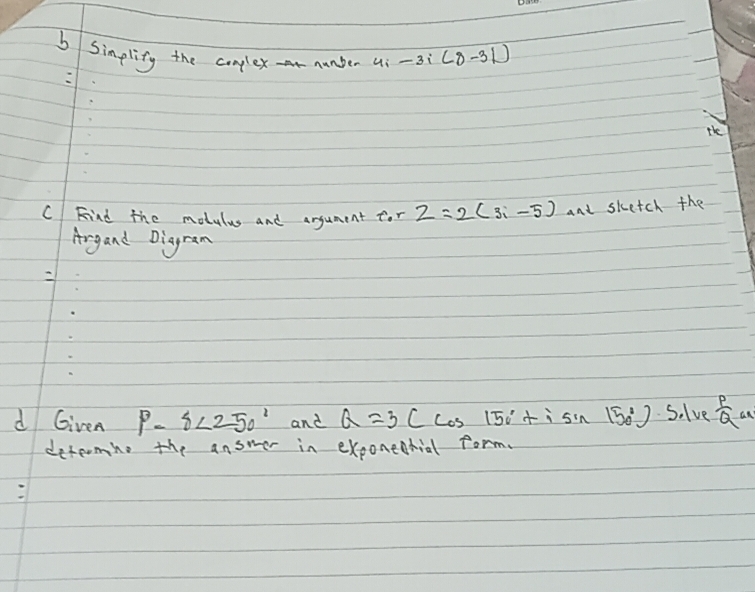 Date
b Simplify the complex number 4i - 3i (8-3i)
=
the
c Find the modulus and argument for Z = 2 (3i - 5) and sketch the
Argand Diagram
=
d Given P = 8∠250° and Q = 3 ( cos 150° + i sin 150°). Solve P/Q an
determine the answer in exponential form.
=